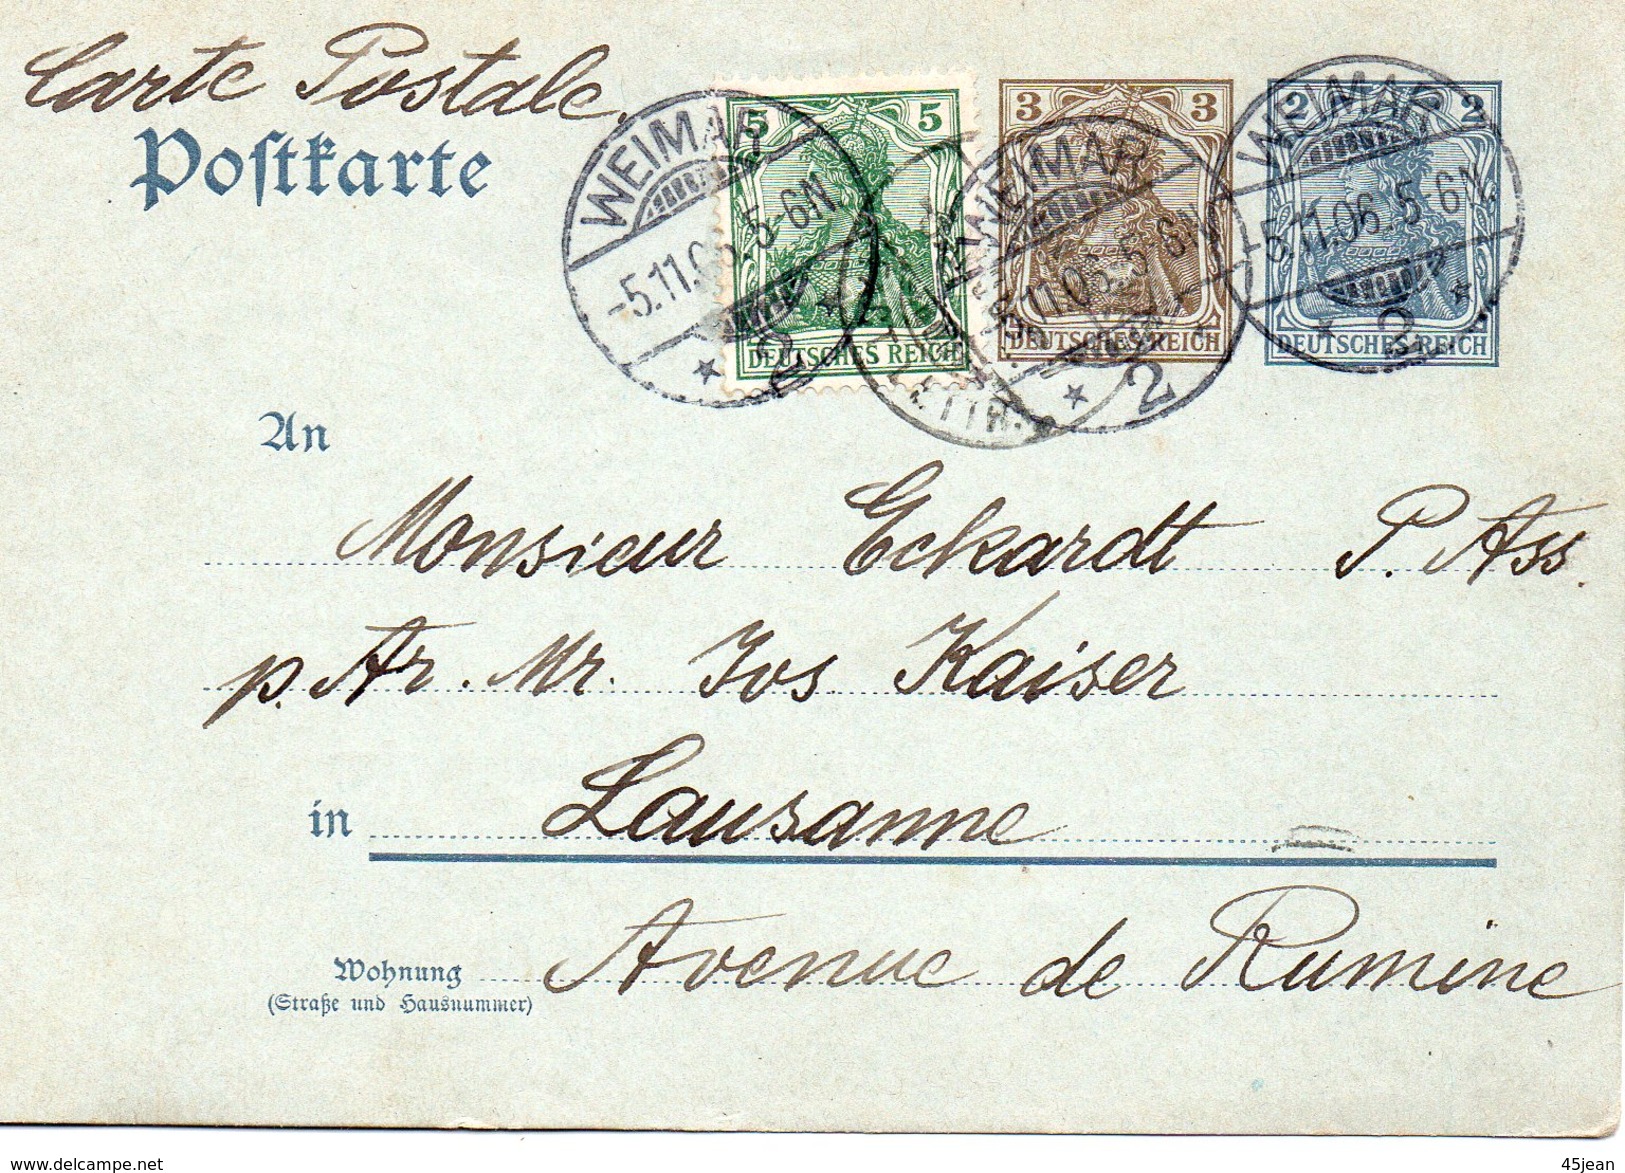 Carte Postale.
Postkarte
5 5
DEUTSCHES REICH
3 3
DEUTSCHES REICH
2 2
DEUTSCHES REICH
WEIMAR
-5.11.06. 5-6N
* 2 *
WEIMAR
5.11.06. 5-6N
* 2
WEIMAR
-5.11.06. 5-6N.
* 2 *
An
Monsieur Eckardt P. Ass.
p. Ar. Mr. Jos Kaiser
in Lausanne
Wohnung Avenue de Rumine
(Straße und Hausnummer)
www.delcampe.net
45jean